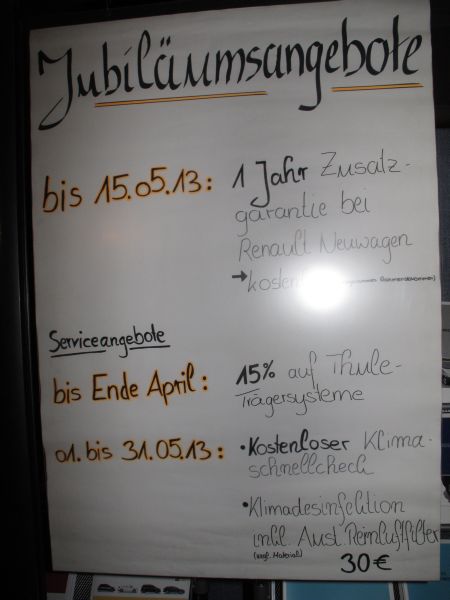 Jubiläumsangebote
bis 15.05.13: 1 Jahr Zusatz-
garantie bei
Renault Neuwagen
Serviceangebote
bis Ende April: 15% auf Thule-
Trägersysteme
01. bis 31.05.13: • Kostenloser Klima-
schnellcheck
• Klimadesinfektion
inkl. Aust. Reinluftfilter
(zzgl. Material)
30 €